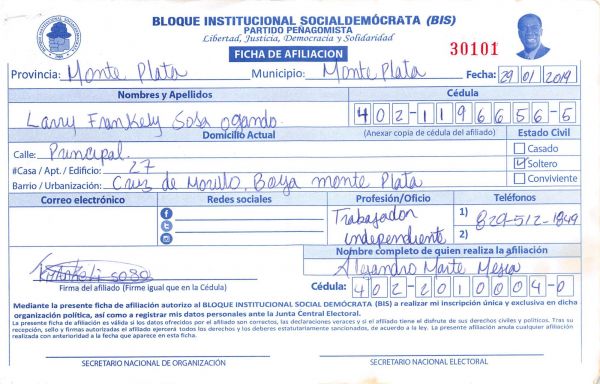 BLOQUE INSTITUCIONAL SOCIALDEMÓCRATA (BIS)
PARTIDO PEÑAGOMISTA
Libertad, Justicia, Democracia y Solidaridad
FICHA DE AFILIACION
30101
Provincia: Monte Plata Municipio: Monte Plata Fecha: 29 01 2019
Nombres y Apellidos Cédula
Larry Frankely Sosa Ogando. 402-1196656-5
Domicilio Actual (Anexar copia de cédula del afiliado) Estado Civil
Calle: Principal. Casado
#Casa / Apt. / Edificio: 27 Soltero
Barrio / Urbanización: Cruz de Morillo, Boya monte Plata Conviviente
Correo electrónico Redes sociales Profesión/Oficio Teléfonos
Trabajador independiente 1) 829-512-1849
2)
Nombre completo de quien realiza la afiliación
Alejandro Marte Mejia
Frankeli sosa
Firma del afiliado (Firme igual que en la Cédula) Cédula: 402-2010004-0
Mediante la presente ficha de afiliación autorizo al BLOQUE INSTITUCIONAL SOCIAL DEMÓCRATA (BIS) a realizar mi inscripción única y exclusiva en dicha
organización política, así como a registrar mis datos personales ante la Junta Central Electoral.
La presente ficha de afiliación es válida si los datos ofrecidos por el afiliado son correctos, las declaraciones veraces y si el afiliado tiene el disfrute de sus derechos civiles y políticos. Tras su
recepción, sello y firmas autorizadas el afiliado ejercerá todos los derechos y los deberes estatutariamente sancionados, de acuerdo a la ley. La presente afiliación anula cualquier afiliación
realizada con anterioridad a la fecha que aparece en esta ficha.
SECRETARIO NACIONAL DE ORGANIZACIÓN SECRETARIO NACIONAL ELECTORAL